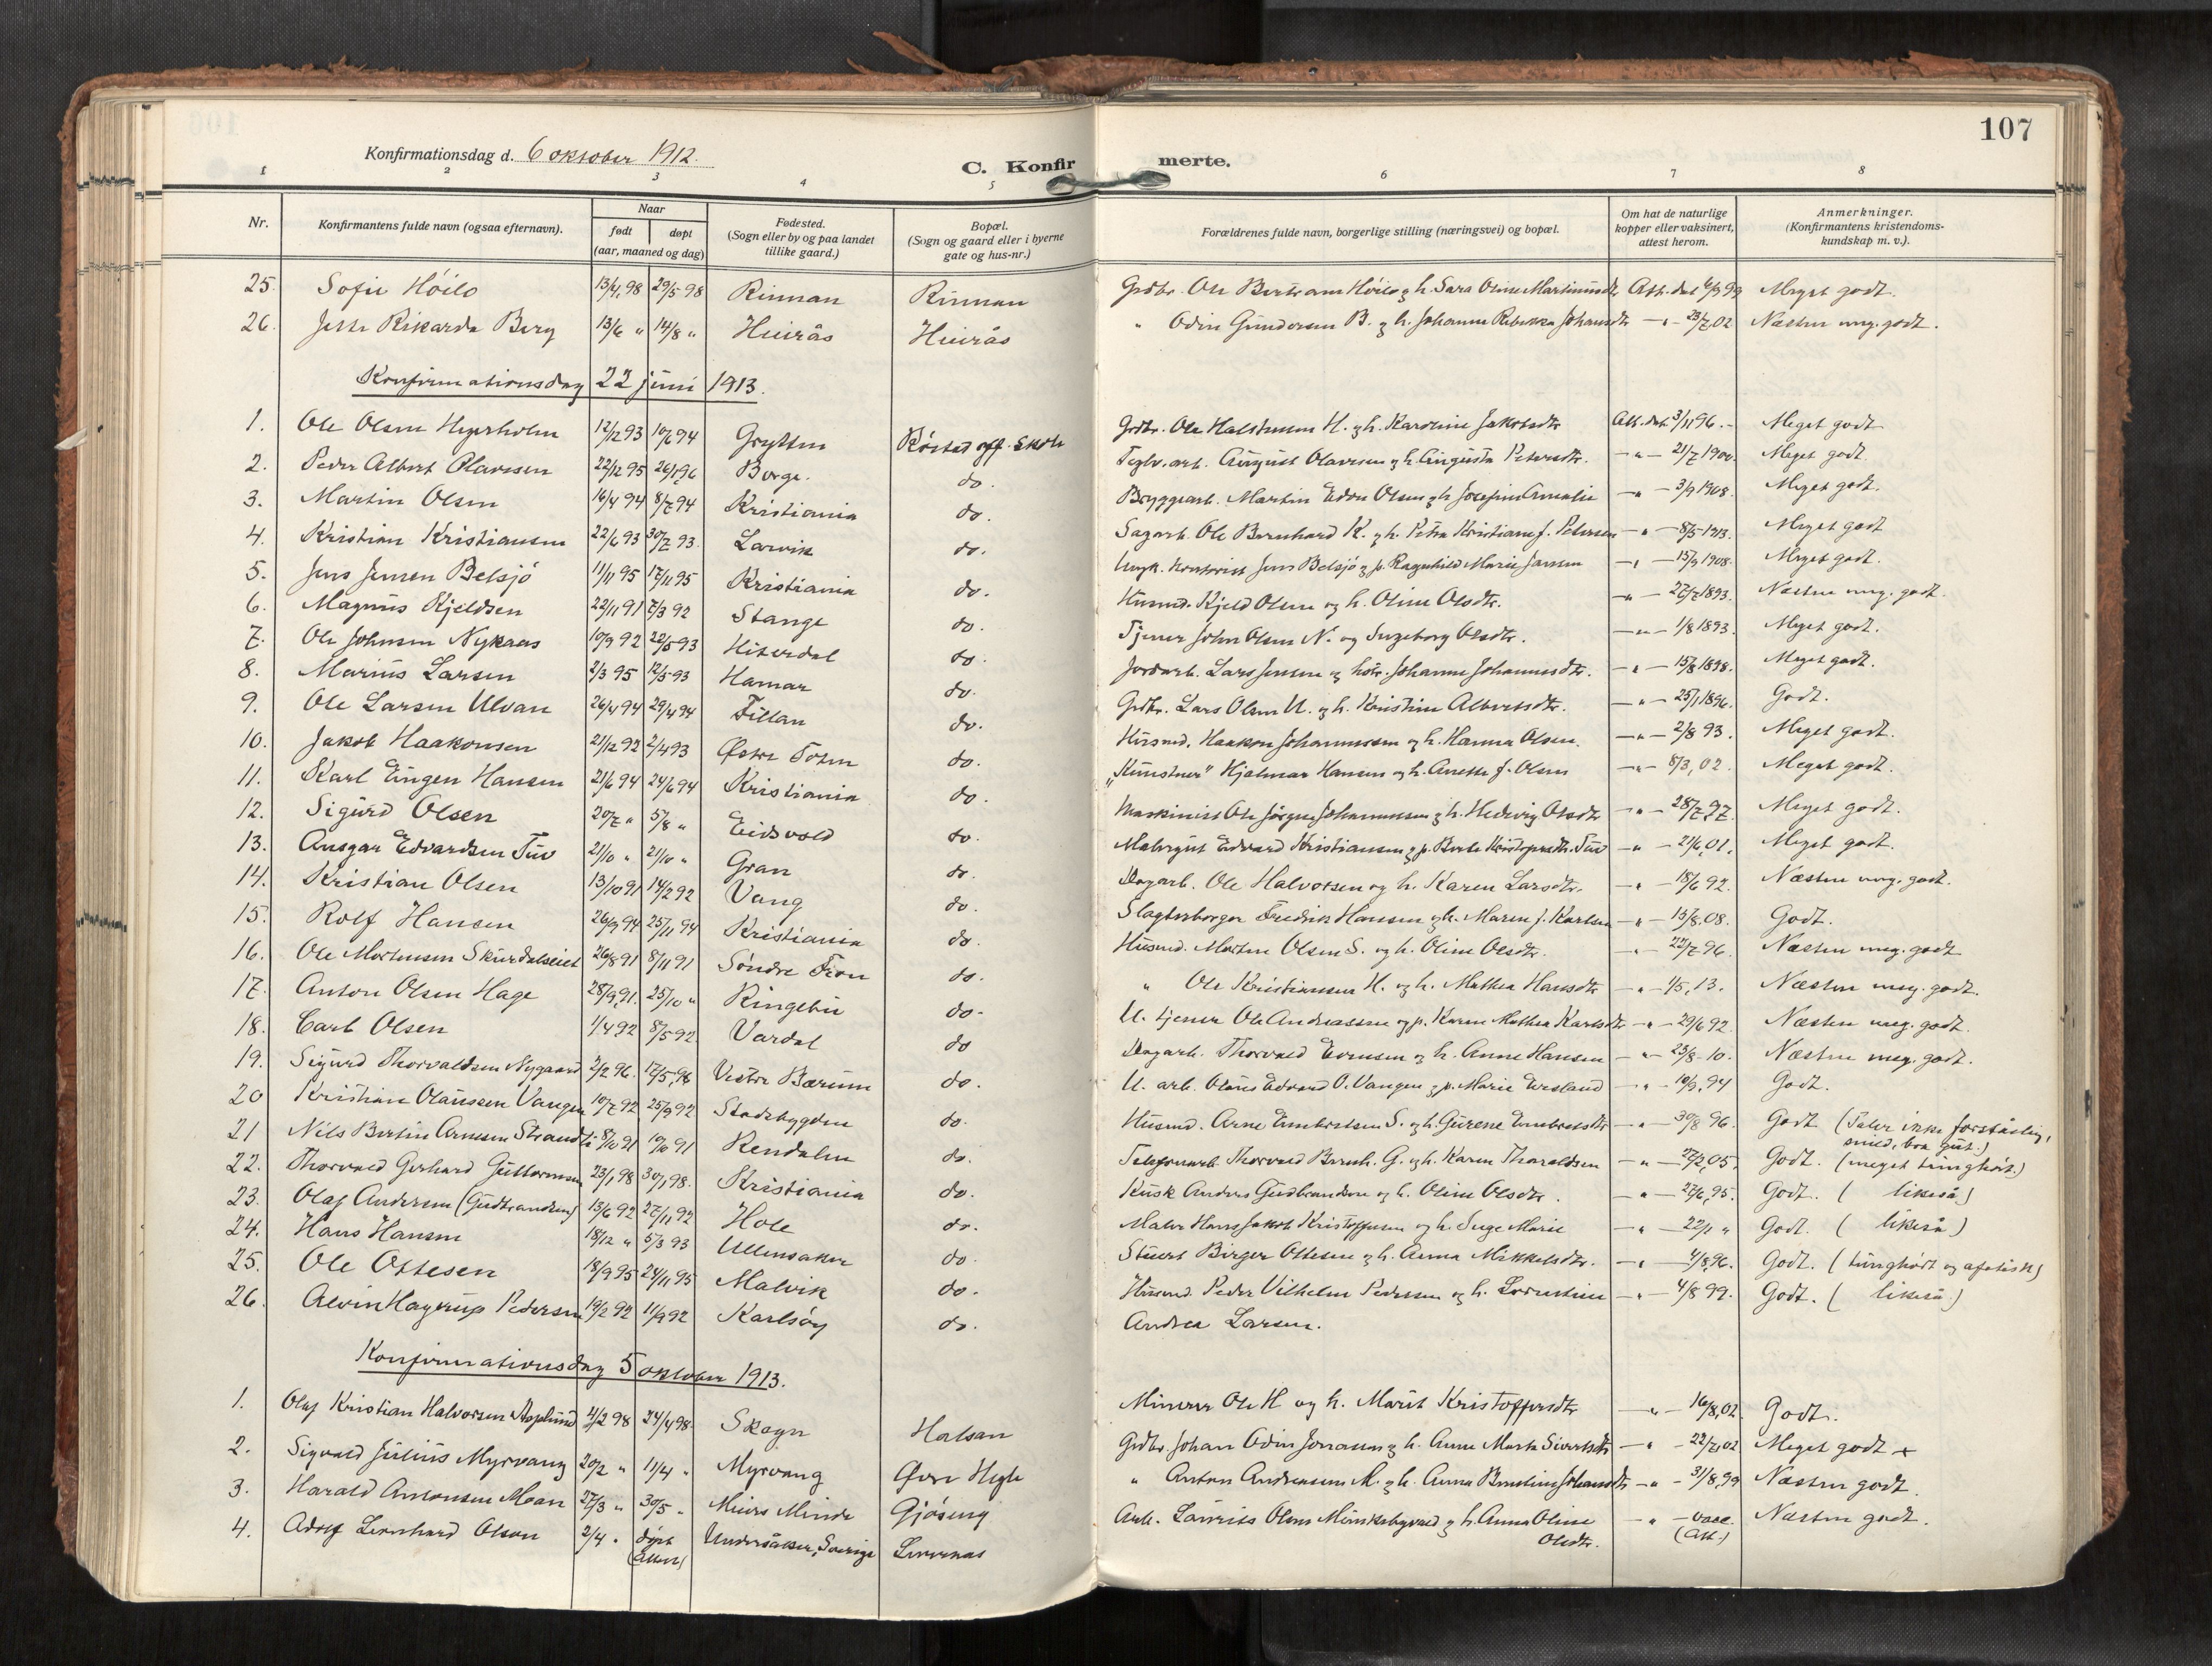 107
Konfirmationsdag d. 6 oktober 1912.
C. Konfirmerte.
1 2 3 4 5 6 7 8
Nr. Konfirmantens fulde navn (ogsaa efternavn). Naar født døpt (aar, maaned og dag) Fødested. (Sogn eller by og paa landet tillike gaard.) Bopæl. (Sogn og gaard eller i byerne gate og hus-nr.) Forældrenes fulde navn, borgerlige stilling (næringsvei) og bopæl. Om hat de naturlige kopper eller vaksinert, attest herom. Anmerkninger. (Konfirmantens kristendomskundskap m. v.).
25. Sofie Høilo 13/4,98 29/5 98 Rinnan Rinnan Grdbr. Ole Bertram Høilo og h. Sara Oline Martinusdtr. Att. dat. 6/9 99 Meget godt.
26. Rikarda Berg 13/6 " 14/8 " " Odin Gundersen B. og h. Johanna Rebekka Johansdtr. — " — 23/7,02 Næsten meg. godt.
Konfirmationsdag 22 juni 1913.
1. Ole Olsen 12/12 93 10/6 94 Grytten Røstad off. Skole Grdbr. Ole Halstensen H. og h. Karoline Jakobsdtr. Att. dat. 3/11 96. Meget godt
2. Peder Albert Olavesen 22/12 95 26/1,96 Borge. do. Teglv. arb. August Olavesen og h. Augusta Petersdtr. — " — 21/7 1900. Meget godt.
3. Martin Olsen 16/4 94 8/7 94 Kristiania do. Bryggearb. Martin Edvin Olsen og h. Josefine Amalie — " — 3/9 1908. Meget godt.
4. Kristian Kristiansen 22/6 93 30/7 93. Larvik do. Sagarb. Ole Bernhard K. og h. Petra Kristiane f. Petersen — " — 8/5 1913. Meget godt
5. Jens Jensen Belsjø 11/11 95 17/11 95 Kristiania do. Kontorist Jens Belsjø og p. Ragnhild Marie Jansen — " — 15/9 1908. Meget godt.
6. Magnus Kjeldsen 22/11 91 7/3 92 Stange do. Husmd. Kjeld Olsen og h. Oline Olsdtr. — " — 27/7 1893. Næsten meg. godt.
7. Ole Johnsen Nykaas 10/9 92 22/5 93 Hiterdal do. Tjener John Olsen N. og Ingeborg Olsdtr. — " — 1/8 1893. Meget godt.
8. Marius Larsen 2/3 95 12/5 93 Hamar do. Jordarb. Lars Jensen og hstr. Johanne Johannesdtr. — " — 15/8 1898. Meget godt.
9. Ole Larsen Ulvan 26/4 94 29/4 94 Fillan do. Grdbr. Lars Olsen U. og h. Kristine Albertsdtr. — " — 25/1 1896. Godt.
10. Jakob Haakonsen 21/12 92 2/4 93 Østre Toten do. Husmd. Haakon Johannessen og h. Hanna Olsen. — " — 2/8 93. Meget godt.
11. Karl Eugen Hansen 21/6 94 24/6 94 Kristiania do. "Kunstner" Hjalmar Hansen og h. Anette f. Olsen — " — 8/3,02. Meget godt.
12. Sigurd Olsen 20/7 " 5/8 " Eidsvold do. Maskinist Ole Jørgen Johannessen og h. Hedevig Olsdtr. — " — 28/7,97. Meget godt.
13. Ansgar Edvardsen Tuv 21/10 " 21/10 " Gran do. Edvard Kristiansen og p. Berte Kristofersdtr. Tuv — " — 21/6,01. Meget godt.
14. Kristian Olsen 13/10 91 14/2 92 Vang do. Dagarb. Ole Halvorsen og h. Karen Larsdtr. — " — 18/6 92. Næsten meg. godt.
15. Rolf Hansen 26/9 94 25/11 94 Kristiania do. Slagterborger Fredrik Hansen og h. Maren f. Karlsen — " — 13/8.08. Godt.
16. Ole Mortensen Skurdalseiet 26/8 91 8/11 91 Søndre Fron do. Husmd. Morten Olsen S. og h. Oline Olsdtr. — " — 22/7 96. Næsten meg. godt
17. Anton Olsen Hage 28/9,91. 25/10 " Ringebu do. " Ole Kristiansen H. og h. Mathea Hansdtr. — " — 1/5,13. Næsten meg. godt.
18. Carl Olsen 1/4 92 8/5 92 Vardal do U. tjener Ole Andreassen og p. Karen Mathea Karlsdtr. — " — 29/6 92. Næsten meg. godt.
19. Sigurd Thorvaldsen Nygaard 2/2 96. 17/5,96 Vestre Bærum do. Dagarb. Thorvald Evensen og h. Anne Hansen — " — 23/8-10. Næsten meg. godt.
20 Kristian Olaussen Vangen 10/7 92 25/9 92 Stadsbygden do. U. arb. Olaus Edvard O. Vangen og p. Marie — " — 10/9,94 Godt.
21 Nils Bertin Arnesen Strandli 8/10 91 19/10 91 Rendalen do. Husmd. Arne Embretsen S. og h. Gurene Embretsdtr. — " — 30/8 96. Godt (Taler ikke forståelig, snild, bra gut.)
22. Thorvald Gerhard Guttormsen 23/1,98 30/1,98. Kristiania do. Telefonarb. Thorvald Bernh. G. og h. Karen Tharaldsen — " — 27/2,05. Godt. (meget tunghørt.)
23. Olaf Andersen (Gudbrandsen) 13/6 92 27/11,92 Hole do. Kusk Anders Gudbrandsen og h. Oline Olsdtr. — " — 27/6,95. Godt. ( likeså)
24. Hans Hansen 18/12 " 5/3 93 Ullensaker do. Maler Hans Jakob Kristoffersen og h. Inge Marie — " — 22/7 " Godt. ( likeså )
25. Ole Ottesen 18/9 95 24/11 95 Malvik do. Stuert Birger Ottesen og h. Anna Mikkelsdtr. — " — 4/8,96. Godt. ( tunghørt og afatisk)
26. Alvin Hagerup Pedersen 19/2 92 11/9 92 Karlsøy do. Husmd. Peder Vilhelm Pedersen og h. Lorentine — " — 4/8 99. Godt. ( likeså.)
Andrea Larsen.
Konfirmationsdag 5 oktober 1913.
1. Olaf Kristian Halvorsen Asplund 4/2 98 24/4 98 Skogn Halsan Minerer Ole H og h. Marit Kristoffersdtr. — " — 16/8,02. Godt.
2. Sigvald Julius Myrvang 20/2 " 11/4 " Myrvang Øvre Hegle Grdbr. Johan Odin Jonassen og h. Anne Marta Sivertsdtr. — " — 22/7,02 Meget godt +
3. Harald Antonsen Moan 27/3 " 30/5 " Minde Gjøseng " Anton Andreassen M. og h. Anna Johansdtr. — " — 31/8,99 Næsten godt.
4. Adolf Leonhard Olson 2/4 " døpt (attest) Undersåker, Sverige Arb. Laurits Olsen og h. Anna Oline Olsdtr. — " — vacc. (Att.) Næsten godt.